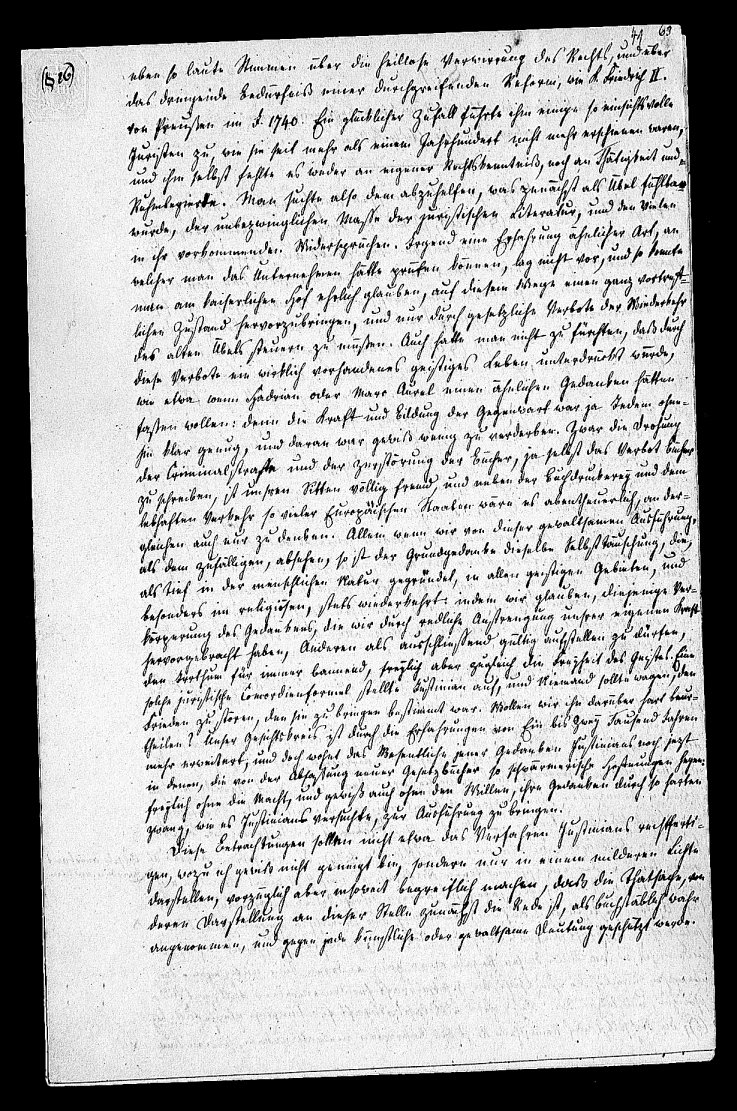 44 63
(§ 26)
eben so laute Stimmen über die heillose Verwirrung des Rechts, und über
das dringende Bedürfniß einer durchgreifenden Reform, wie K. Friedrich II.
von Preußen im J. 1740. Ein glücklicher Zufall führte ihm einige so einsichtsvolle
Juristen zu, wie sie seit mehr als einem Jahrhundert nicht mehr erschienen waren,
und ihm selbst fehlte es weder an eigener Rechtskenntniß, noch an Thätigkeit und
Ruhmbegierde. Man suchte also dem abzuhelfen, was zunächst als Übel fühlbar
wurde, der unbezwinglichen Masse der juristischen Literatur, und den vielen
in ihr vorkommenden Widersprüchen. Irgend eine Erfahrung ähnlicher Art, an
welcher man das Unternehmen hätte prüfen können, lag nicht vor, und so konnte
man am kaiserlichen Hof ehrlich glauben, auf diesem Wege einen ganz vortreff-
lichen Zustand hervorzubringen, und nur durch gesetzliche Verbote der Wiederkehr
des alten Übels steuern zu müssen. Auch hatte man nicht zu fürchten, daß durch
diese Verbote ein wirklich vorhandenes geistiges Leben unterdrückt würde,
wie etwa wenn Hadrian oder Marc Aurel einen ähnlichen Gedanken hätten
fassen wollen: denn die Kraft und Bildung der Gegenwart war ja Jedem ohne-
hin klar genug, und daran war gewiß wenig zu verderben. Zwar die Drohung
der Criminalstrafe und der Zerstörung der Bücher, ja selbst das Verbot Bücher
zu schreiben, ist unsren Sitten völlig fremd, und neben der Buchdruckerey und dem
lebhaften Verkehr so vieler Europäischen Staaten wäre es abentheuerlich, an der-
gleichen auch nur zu denken. Allein wenn wir von dieser gewaltsamen Ausführung,
als dem zufälligen, absehen, so ist der Grundgedanke dieselbe Selbsttäuschung, die,
als tief in der menschlichen Natur gegründet, in allen geistigen Gebieten, und
besonders im religiösen, stets wiederkehrt: indem wir glauben, diejenige Ver-
körperung des Gedankens, die wir durch redliche Anstrengung unsrer eigenen Kraft
hervorgebracht haben, Anderen als ausschließend gültig aufstellen zu dürfen,
den Irrthum für immer bannend, freylich aber zugleich die Freyheit des Geistes. Eine
solche juristische Concordienformel stellte Justinian auf, und Niemand sollte wagen, den
Frieden zu stören, den sie zu bringen bestimmt war. Wollen wir ihn darüber hart beur-
theilen? Unser Gesichtskreis ist durch die Erfahrungen von Ein bis Zwey Tausend Jahren
mehr erweitert, und doch wohnt das Wesentliche jener Gedanken Justinians noch jetzt
in denen, die von der Abfassung neuer Gesetzbücher so schwärmerische Hoffnungen hegen;
freylich ohne die Macht, und gewiß auch ohne den Willen, ihre Gedanken durch so harten
Zwang, wie es Justinian versuchte, zur Ausführung zu bringen.
Diese Betrachtungen sollen nicht etwa das Verfahren Justinians rechtferti-
gen, wozu ich gewiß nicht geneigt bin, sondern nur in einem milderen Lichte
darstellen, vorzüglich aber insoweit begreiflich machen, daß die Thatsache, von
deren Darstellung an dieser Stelle zunächst die Rede ist, als buchstäblich wahr
angenommen, und gegen jede künstliche oder gewaltsame Deutung geschützt werde.